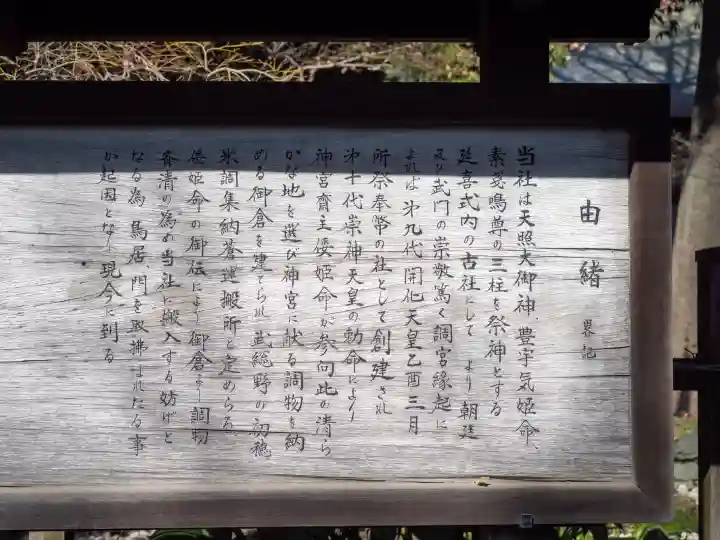 由緒 畧記
当社は天照大御神、豊宇気姫命、
素戔嗚尊の三柱を祭神とする
延喜式内の古社にして より朝廷
及び武門の崇敬篤く調宮縁起に
よれば 第九代開化天皇乙酉三月
所祭奉幣の社として創建され
第十代崇神天皇の勅命により
神宮斎主倭姫命が参向此の清ら
かな地を選び神宮に献る調物を納
める御倉を建てられ武総野の初穂
米調集納蒼運搬所と定めらる
倭姫命の御伝により御倉より調物
斎清の為め当社に搬入する妨げと
なる為 鳥居、門を取拂はれたる事
が起因となり現今に到る